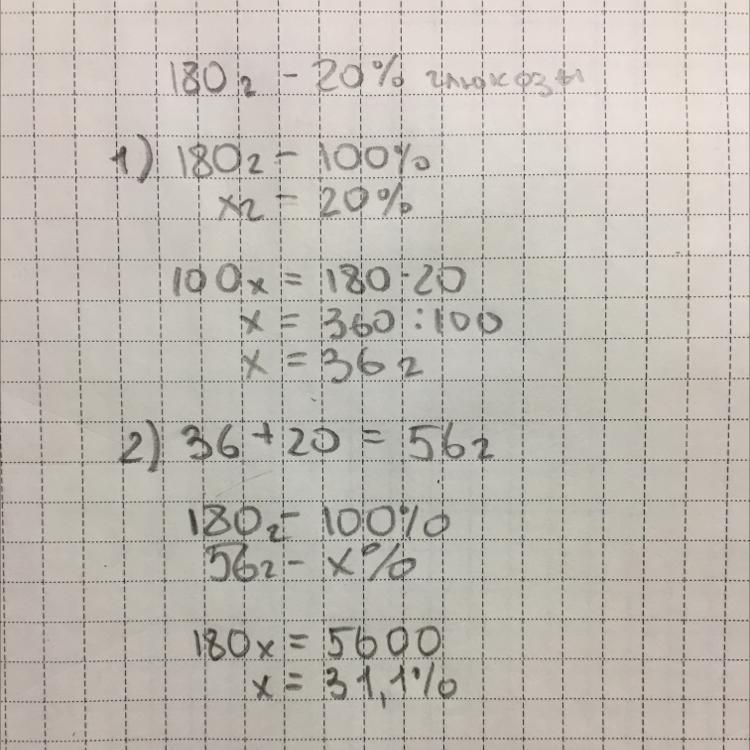 180г - 20% глюкозы
1) 180г - 100%
хг - 20%
100х = 180·20
х = 360 : 100
х = 36г
2) 36 + 20 = 56г
180г - 100%
56г - х%
180х = 5600
х = 31,1%